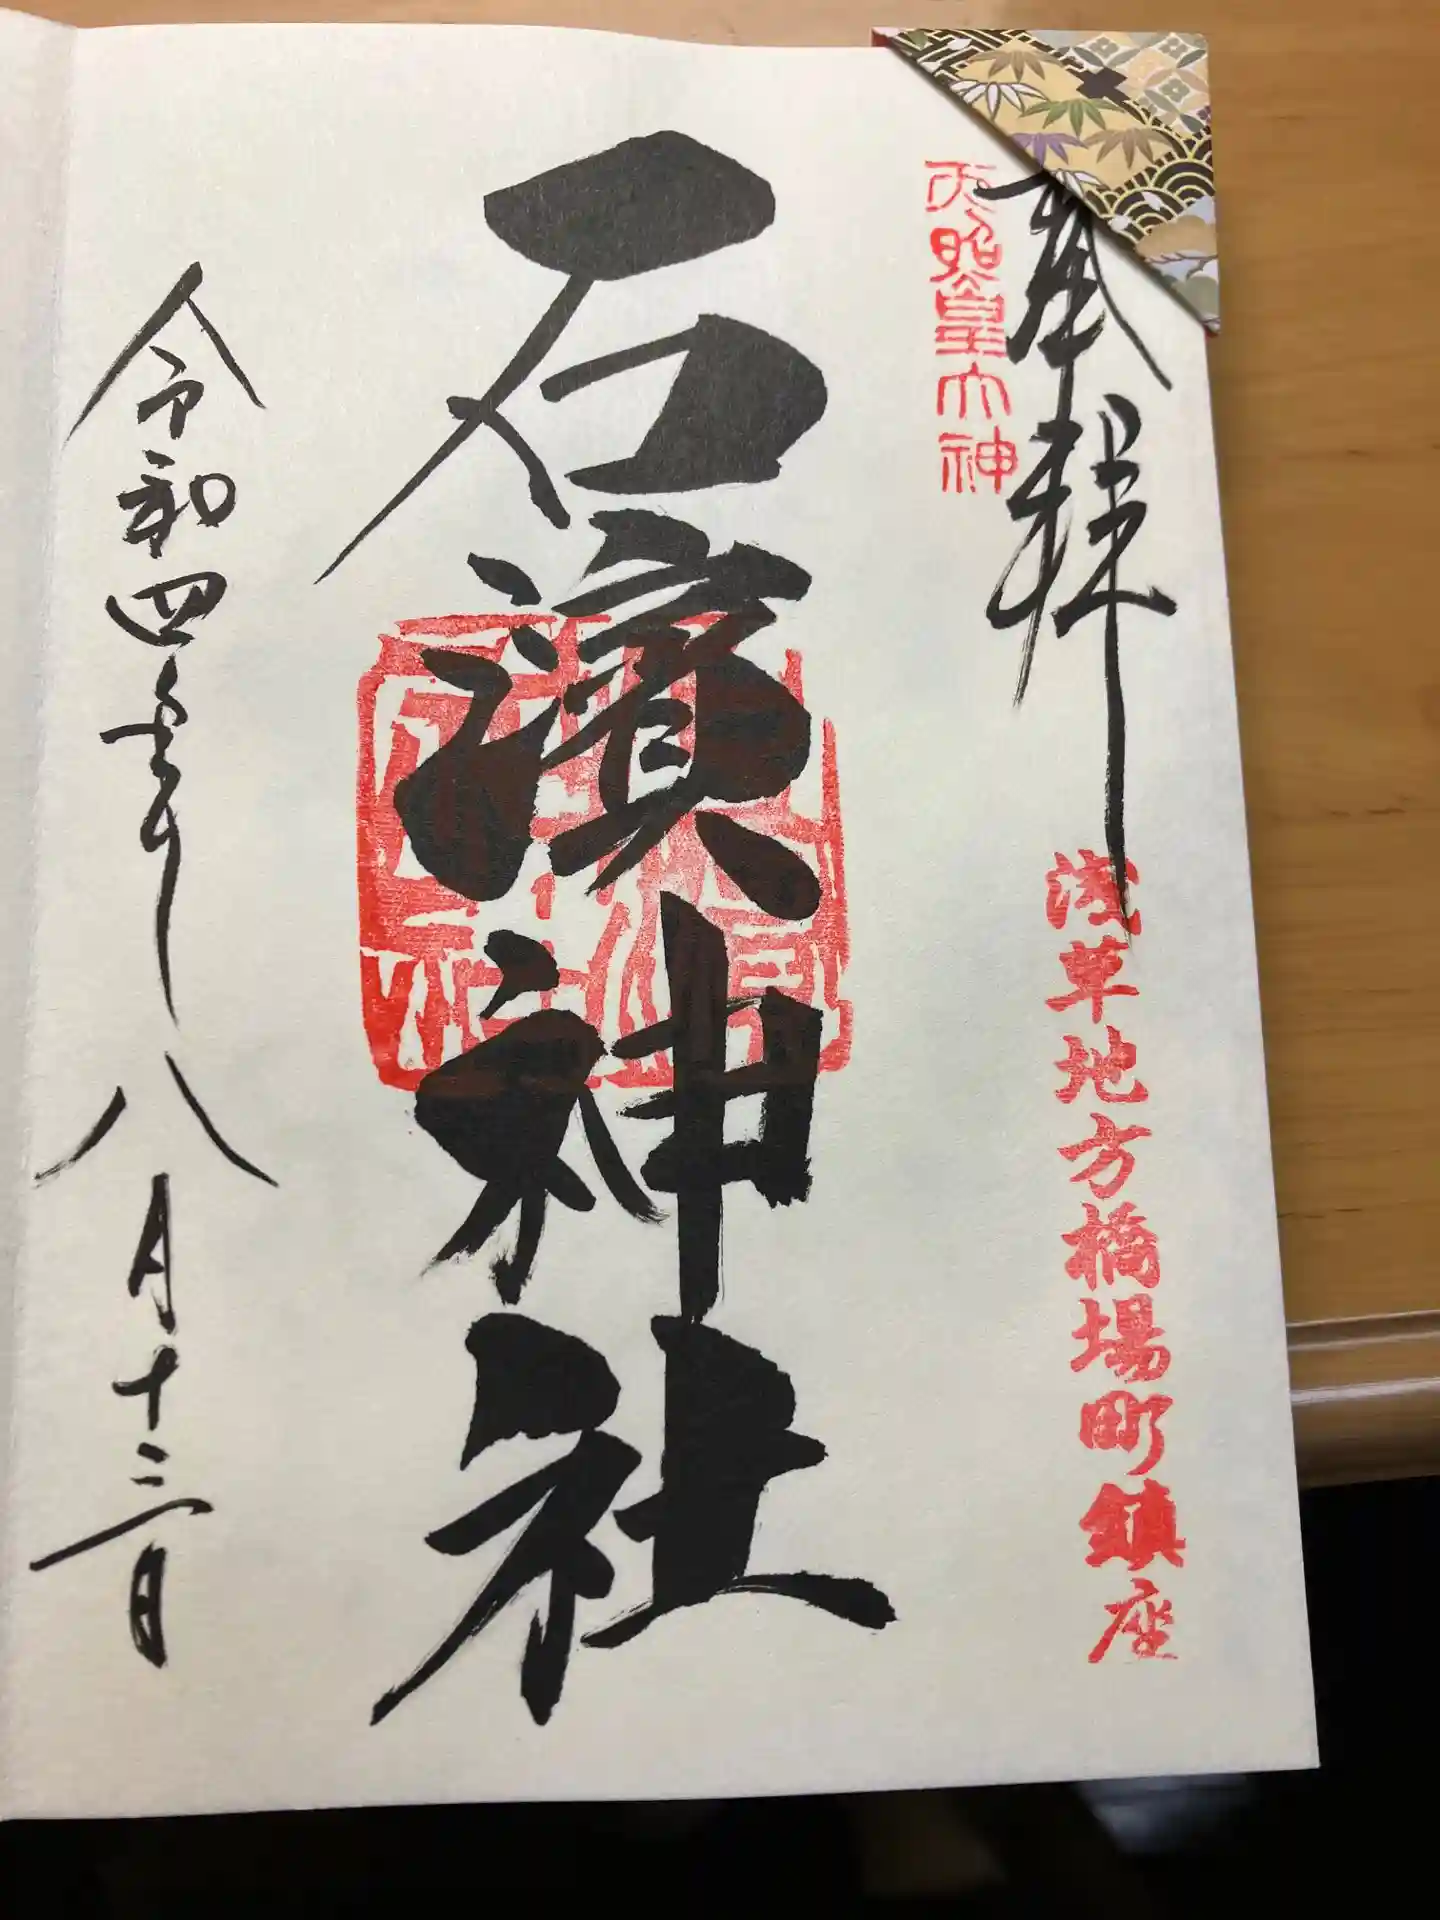 奉拝
浅草地方橋場町鎮座
天照皇大神
石濱神社
令和四年八月十三日